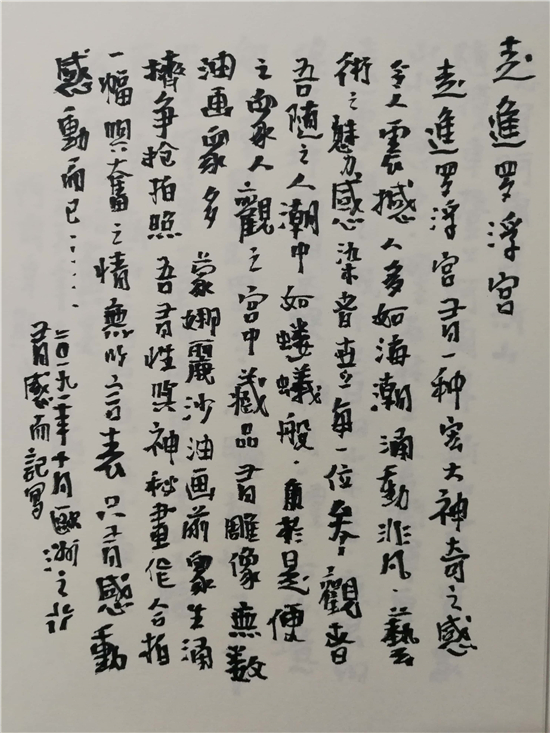 走進罗浮宫
走進罗浮宫有一种宏大神奇之感
令人震撼人多如海潮涌動非凡.藝
術之魅力感染着每一位参觀者
吾随之人潮中如蝼蟻般.於是便
之眾人觀之宫中藏品有雕像無数
油画眾多 蒙娜麗沙油画前眾生涌
擠争抢拍照 吾有性與神秘畫作合拍
一幅興奮之情無以言表只有感動
感動而已......
年十月歐洲之行
有感而記写